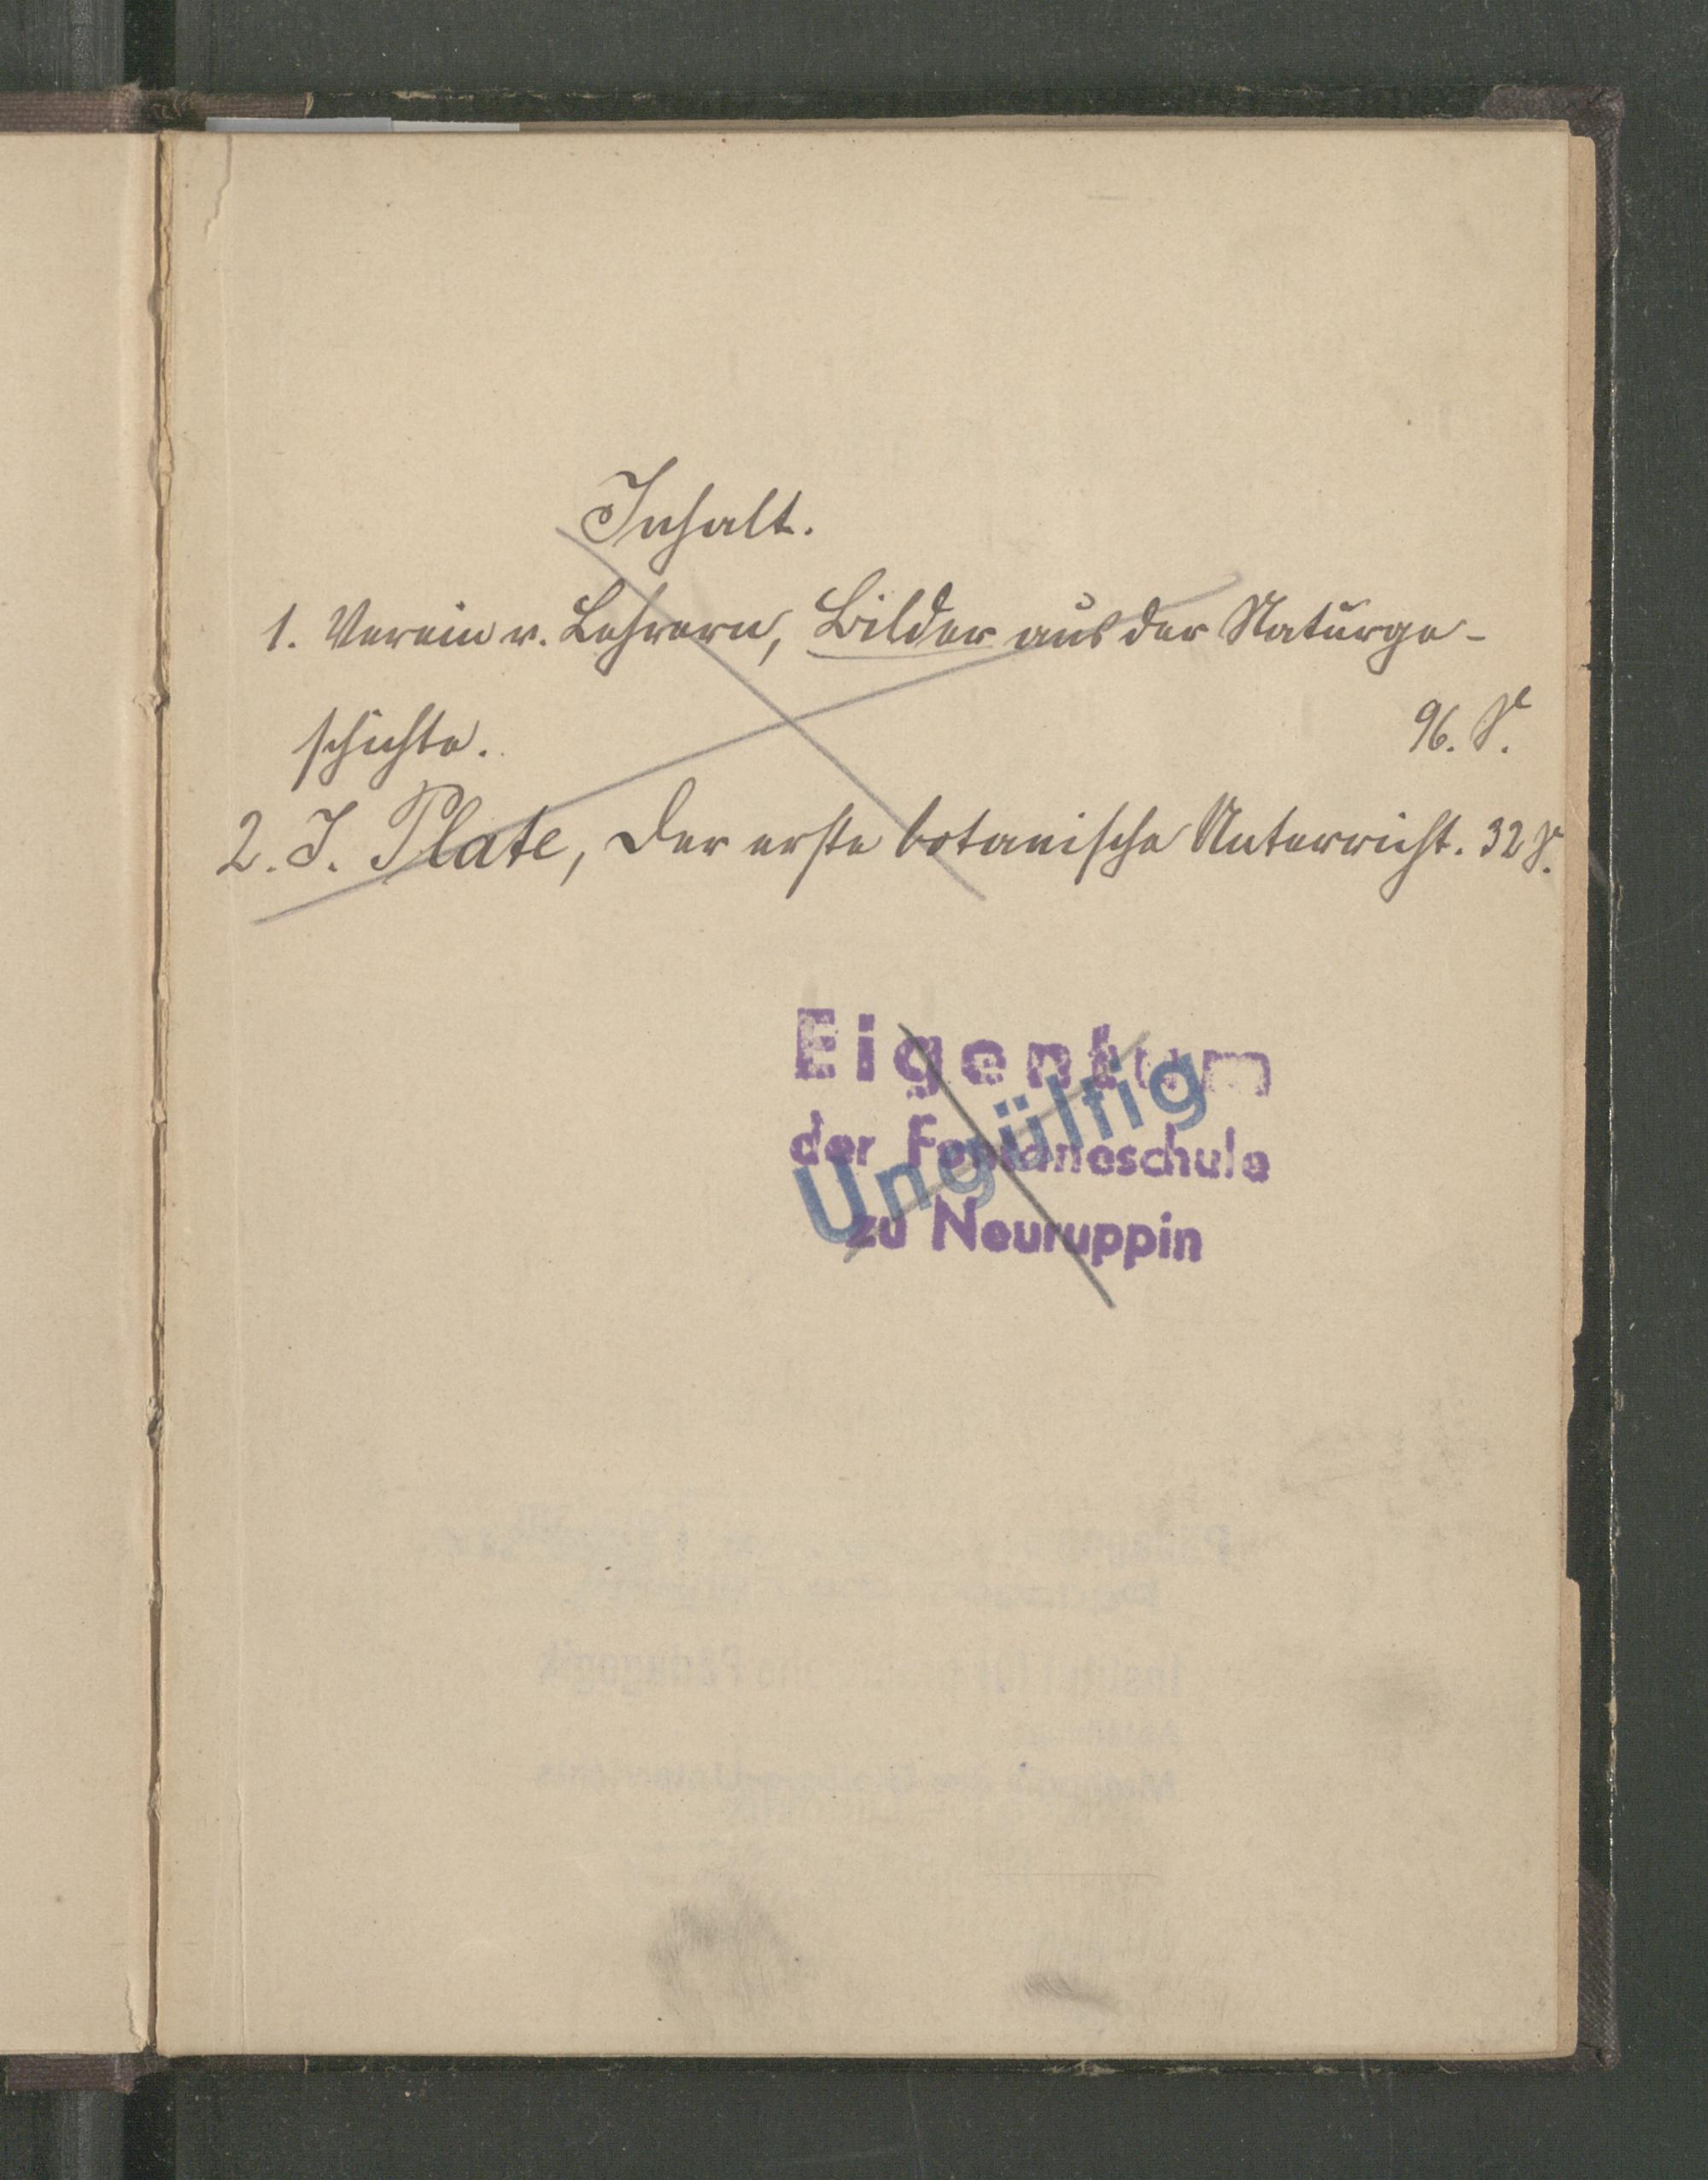 Inhalt.
1. Verein v. Lehrern, Bilder aus der Naturge-
schichte. 96. S.
2. J. Plate, Der erste botanische Unterricht. 32 S.
Eigentum
der Fontaneschule
zu Neuruppin
Ungültig